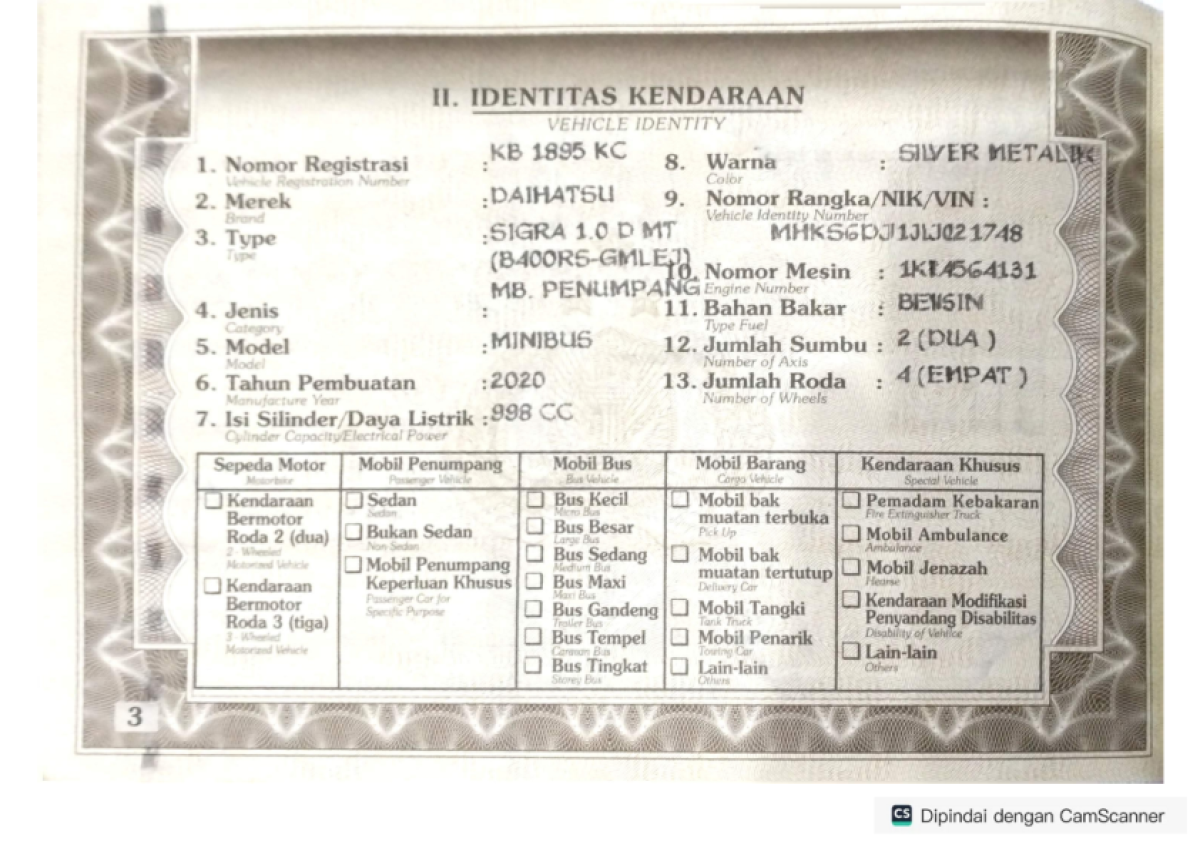 II. IDENTITAS KENDARAAN
VEHICLE IDENTITY
1. Nomor Registrasi : KB 1895 KC
Vehicle Registration Number
2. Merek : DAIHATSU
Brand
3. Type : SIGRA 1.0 D MT
Type
(B400RS-GMLEJ)
MB. PENUMPANG
4. Jenis :
Category
5. Model : MINIBUS
Model
6. Tahun Pembuatan : 2020
Manufacture Year
7. Isi Silinder/Daya Listrik : 998 CC
Cylinder Capacity/Electrical Power
8. Warna : SILVER METALIK
Color
9. Nomor Rangka/NIK/VIN :
Vehicle Identity Number
MHKS6DJ1JLJ021748
10. Nomor Mesin :
Engine Number
11. Bahan Bakar : BENSIN
Type Fuel
12. Jumlah Sumbu : 2 (DUA )
Number of Axis
13. Jumlah Roda : 4 (EMPAT )
Number of Wheels
Sepeda Motor
Motorbike
Kendaraan
Bermotor
Roda 2 (dua)
2 - Wheeled
Motorized Vehicle
Kendaraan
Bermotor
Roda 3 (tiga)
3 - Wheeled
Motorized Vehicle
Mobil Penumpang
Passenger Vehicle
Sedan
Sedan
Bukan Sedan
Non Sedan
Mobil Penumpang
Keperluan Khusus
Passenger Car for
Specific Purpose
Mobil Bus
Bus Vehicle
Bus Kecil
Micro Bus
Bus Besar
Large Bus
Bus Sedang
Medium Bus
Bus Maxi
Maxi Bus
Bus Gandeng
Trailer Bus
Bus Tempel
Bus Tingkat
Storey Bus
Mobil Barang
Cargo Vehicle
Mobil bak
muatan terbuka
Pick Up
Mobil bak
muatan tertutup
Delivery Car
Mobil Tangki
Tank Truck
Mobil Penarik
Towing Car
Lain-lain
Others
Kendaraan Khusus
Special Vehicle
Pemadam Kebakaran
Fire Extinguisher Truck
Mobil Ambulance
Ambulance
Mobil Jenazah
Hearse
Kendaraan Modifikasi
Penyandang Disabilitas
Disability of Vehilce
Lain-lain
Others
3
CS Dipindai dengan CamScanner